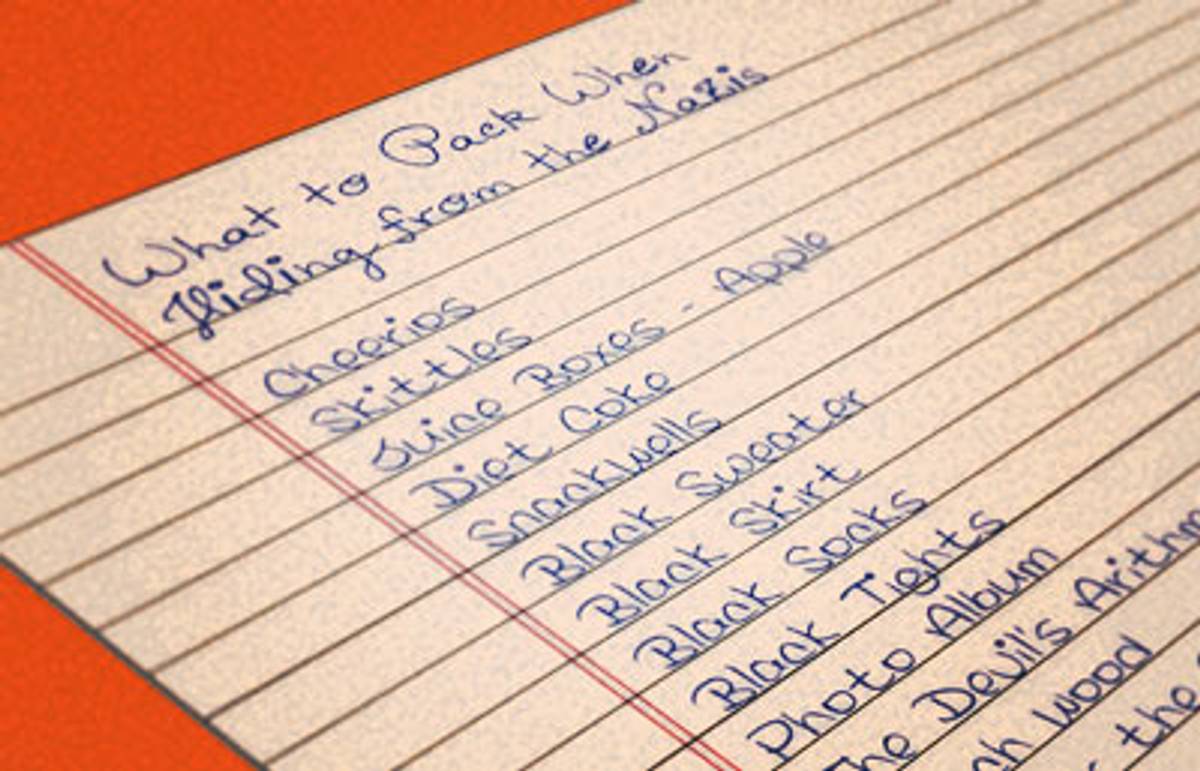 What to Pack When
Hiding from the Nazis
Cheerios
Skittles
Juice Boxes - Apple
Diet Coke
Snackwells
Black Sweater
Black Skirt
Black Socks
Black Tights
Photo Album
The Devil's
wood
the